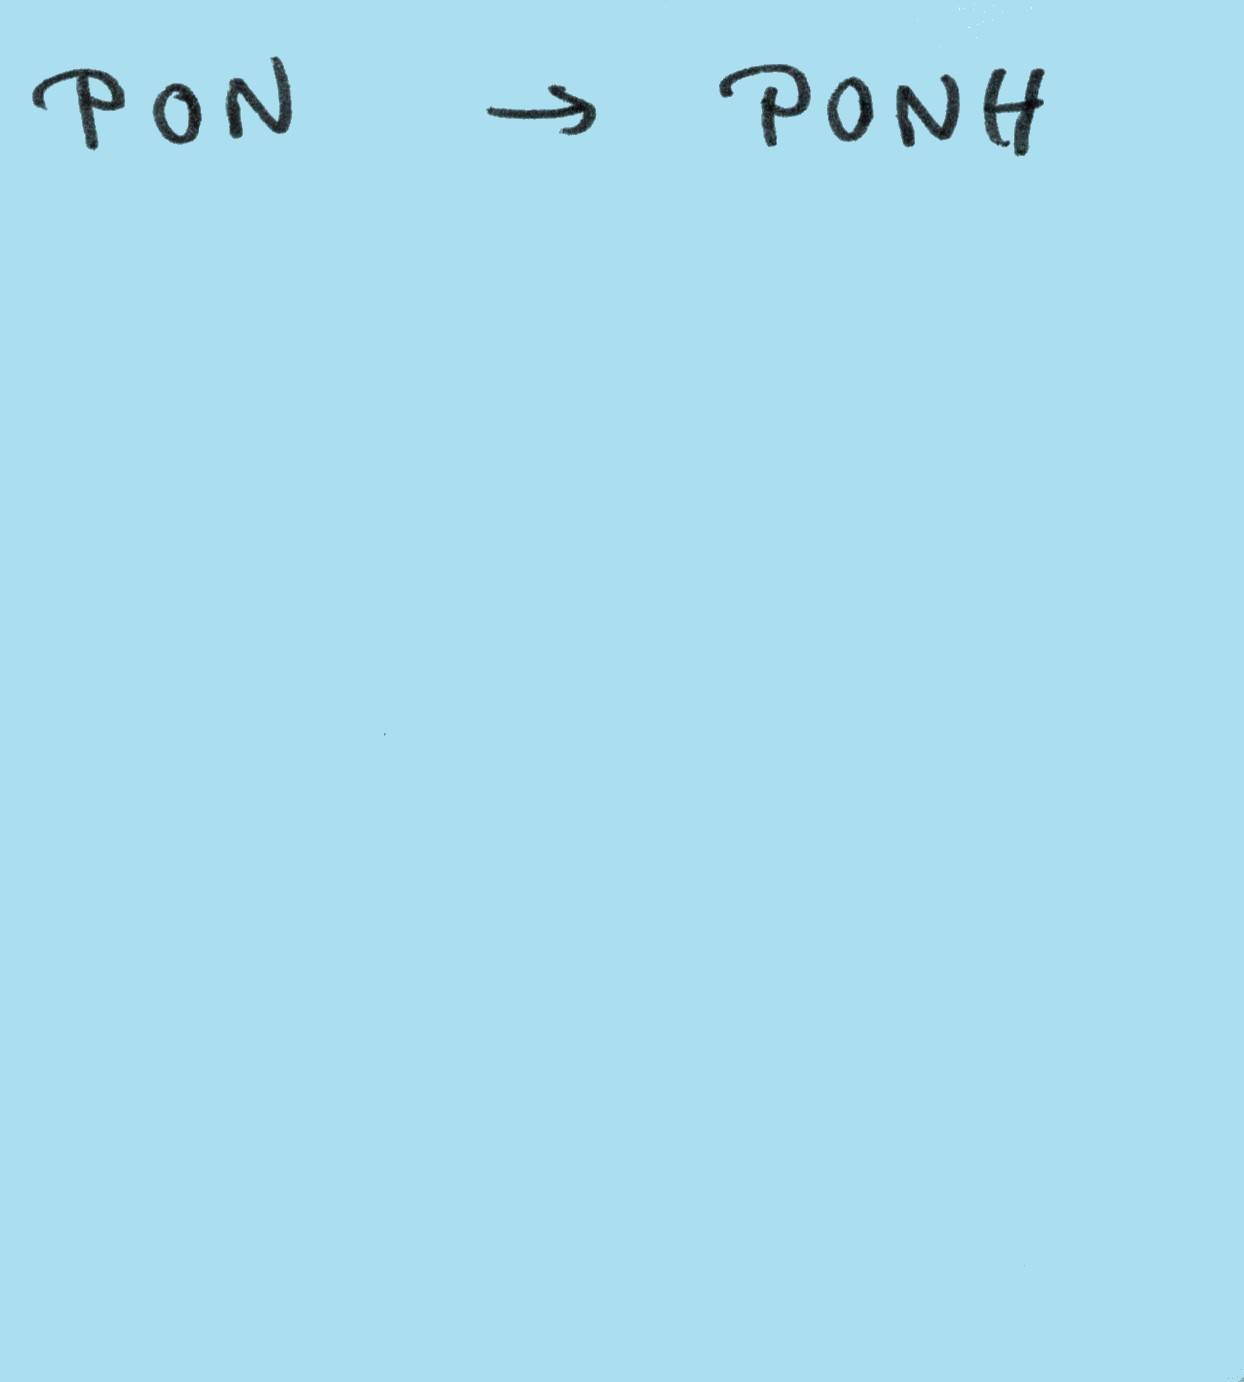 PON → PONH